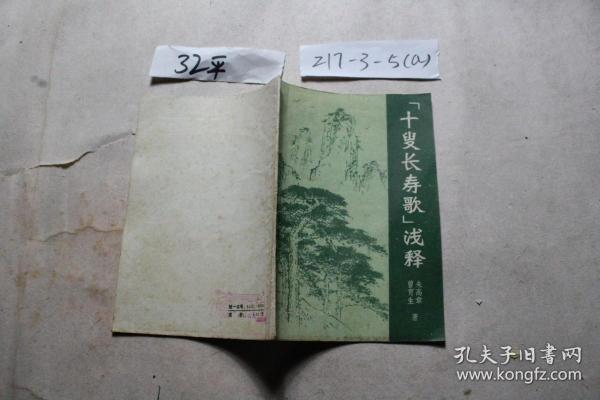 32平
217-3-5(a)
「十叟长寿歌」浅释
曾可生
著
孔夫子旧书网
www.kongfz.com